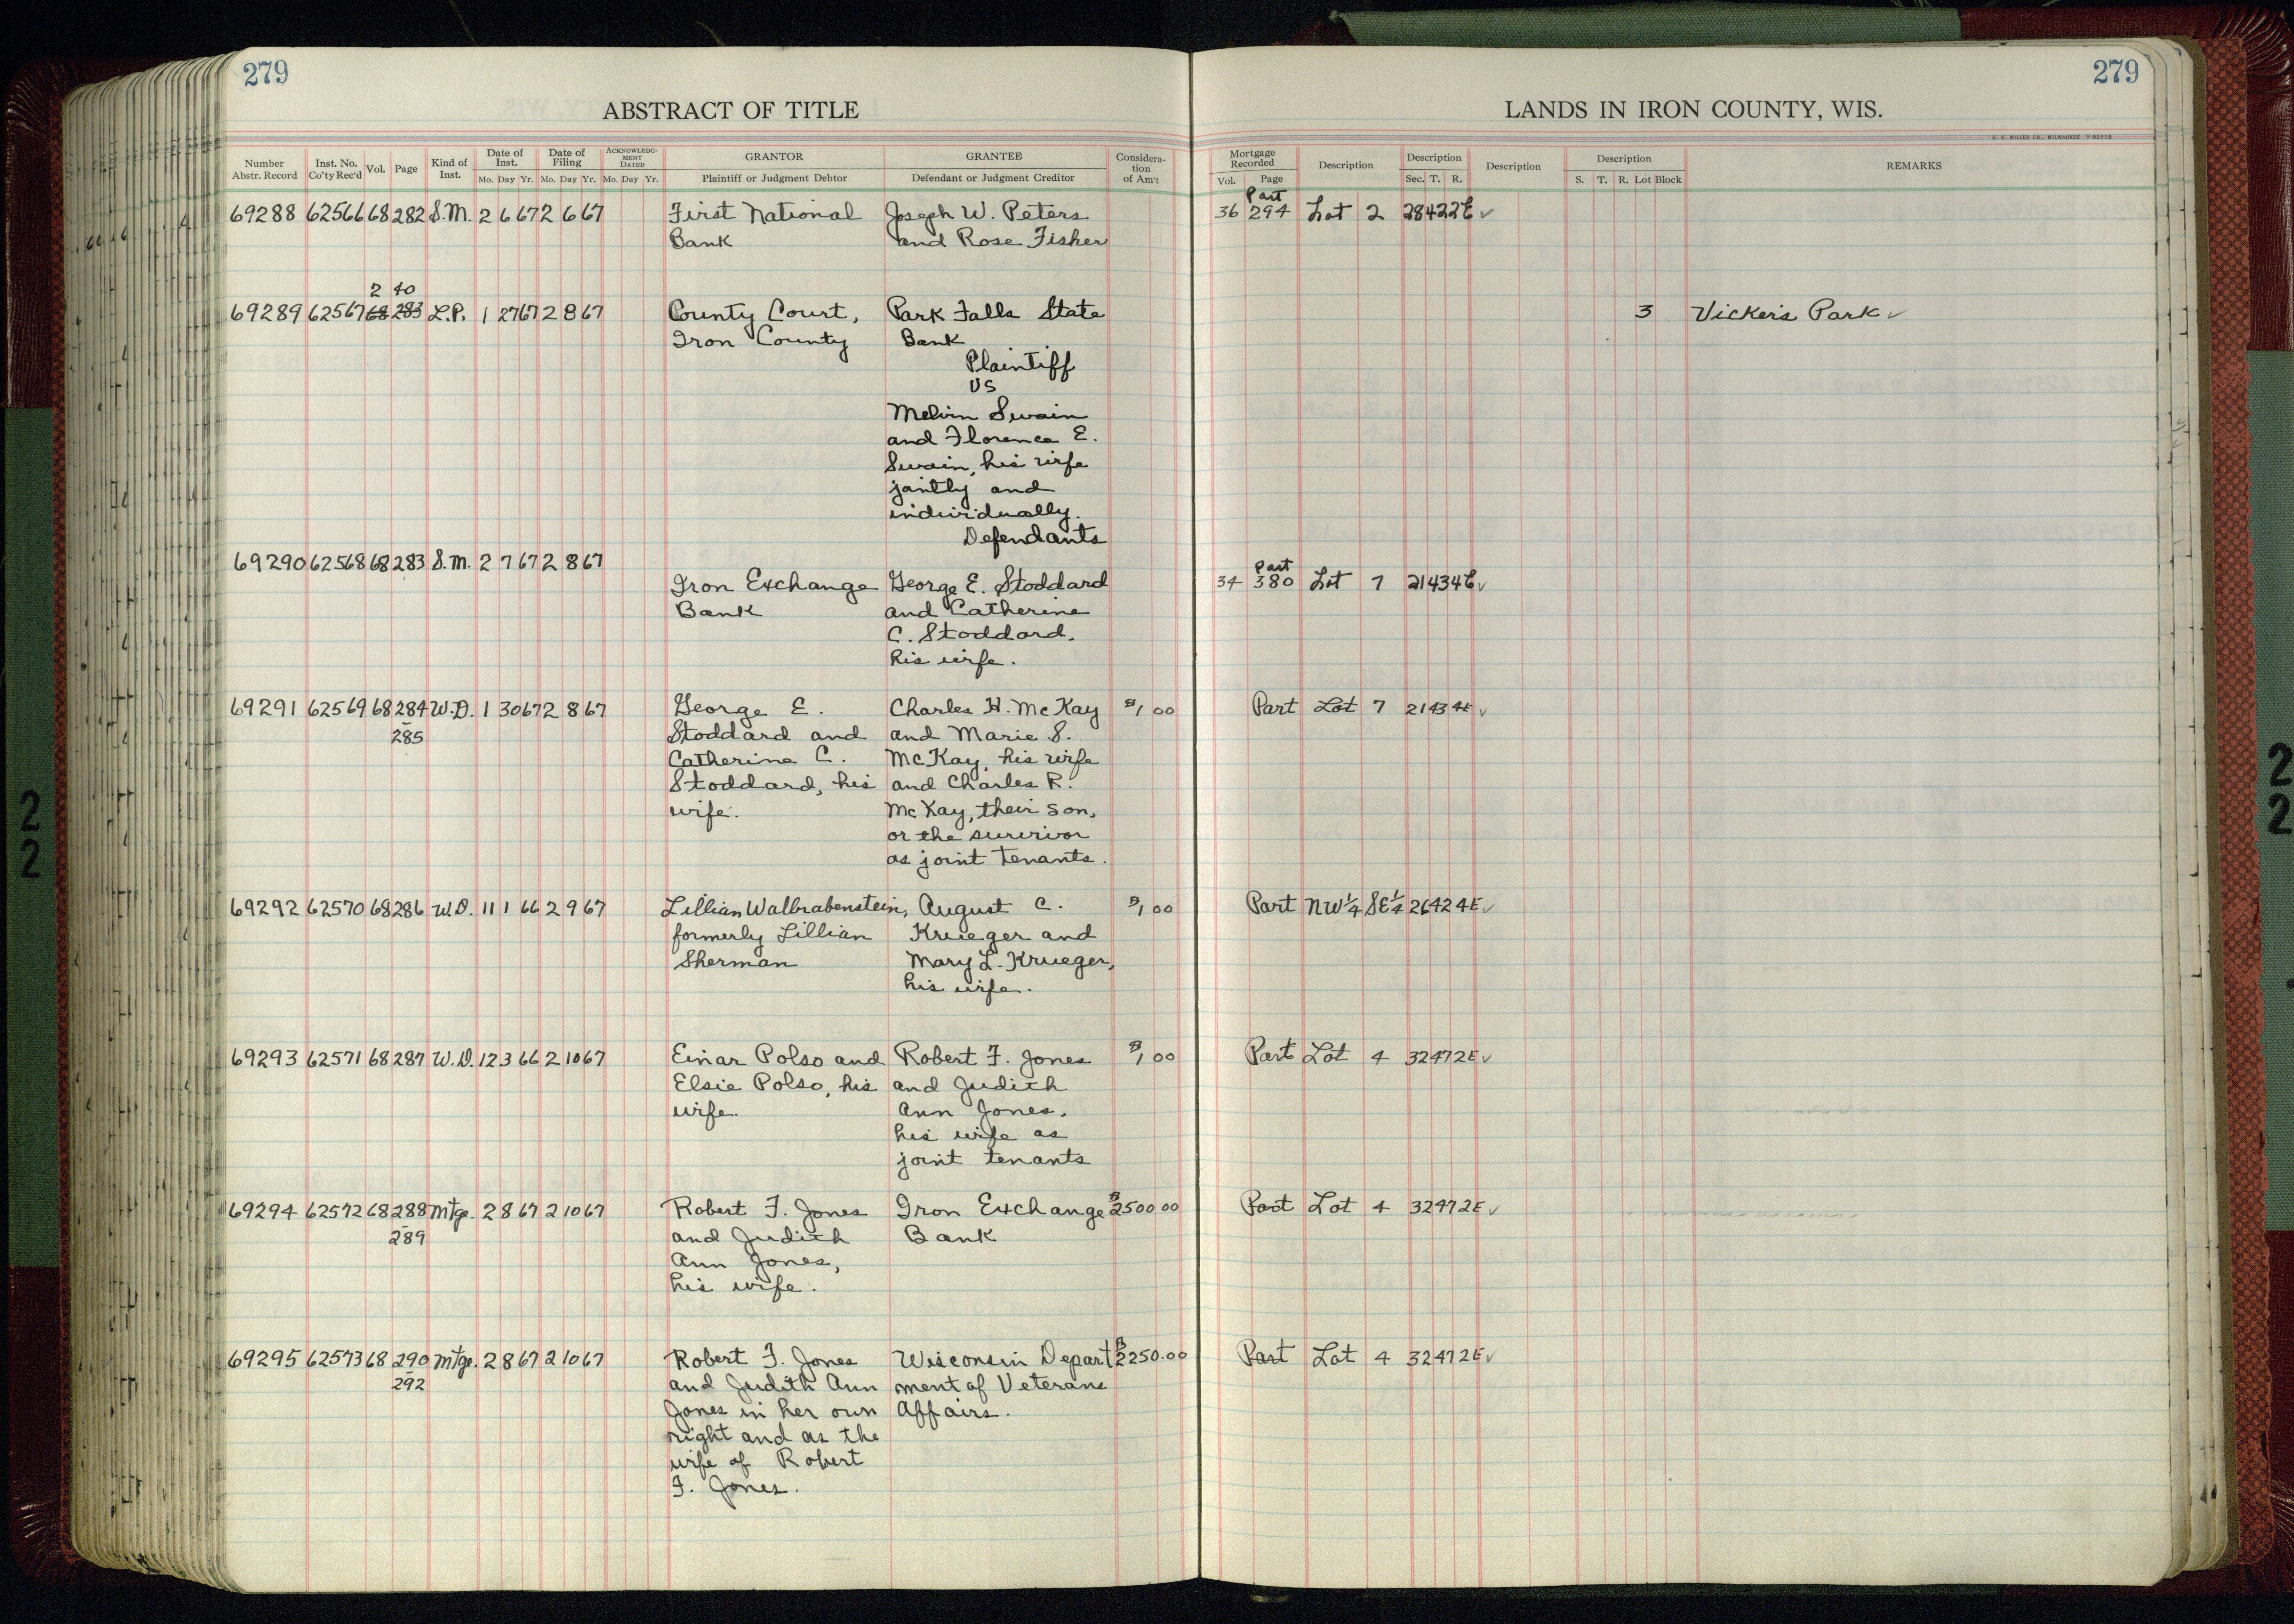 279
279
ABSTRACT OF TITLE
LANDS IN IRON COUNTY, WIS.
H. C. MILLER CO., MILWAUKEE
Number Abstr. Record
Inst. No. Co'ty Rec'd
Vol.
Page
Kind of Inst.
Date of Inst.
Mo. Day Yr.
Date of Filing
Mo. Day Yr.
ACKNOWLEDGMENT DATED
Mo. Day Yr.
GRANTOR
Plaintiff or Judgment Debtor
GRANTEE
Defendant or Judgment Creditor
Consideration of Am't
Mortgage Recorded
Vol. Page
Description
Description
Sec. T. R.
Description
Description
S. T. R. Lot Block
REMARKS
69288 62566 68 282 S.M. 2 6 67 2 6 67 First National Joseph W. Peters 36 Part 294 Lot 2 28 42 2E ✓
Bank and Rose Fisher
2 40
69289 62567 68 283 L.P. 1 27 67 2 8 67 County Court, Park Falls State 3 Vickers Park ✓
Iron County Bank
Plaintiff
VS
Melvin Swain
and Florence E.
Swain, his wife
jointly and
individually.
Defendants
69290 62568 68 283 S.M. 2 7 67 2 8 67
Iron Exchange George E. Stoddard 34 Part 380 Lot 7 21 43 4E ✓
Bank and Catherine
C. Stoddard,
his wife.
69291 62569 68 284 W.D. 1 30 67 2 8 67 George E. Charles H. McKay $1 00 Part Lot 7 21 43 4E ✓
- 285 Stoddard and and Marie S.
Catherine C. McKay, his wife
Stoddard, his and Charles R.
wife. McKay, their son,
or the survivor
as joint tenants.
69292 62570 68 286 W.D. 11 1 66 2 9 67 Lillian Walbrabenstein, August C. $1 00 Part NW¼ SE¼ 26 42 4E ✓
formerly Lillian Krueger and
Sherman Mary L. Krueger,
his wife.
69293 62571 68 287 W.D. 12 3 66 2 10 67 Einar Polso and Robert F. Jones $1 00 Part Lot 4 32 47 2E ✓
Elsie Polso, his and Judith
wife. Ann Jones,
his wife as
joint tenants
69294 62572 68 288 Mtge. 2 8 67 2 10 67 Robert F. Jones Iron Exchange $2500 00 Part Lot 4 32 47 2E ✓
- 289 and Judith Bank
Ann Jones,
his wife.
69295 62573 68 290 Mtge. 2 8 67 2 10 67 Robert F. Jones Wisconsin Depart $2250.00 Part Lot 4 32 47 2E ✓
- 292 and Judith Ann ment of Veterans
Jones in her own Affairs.
right and as the
wife of Robert
F. Jones.
22
22